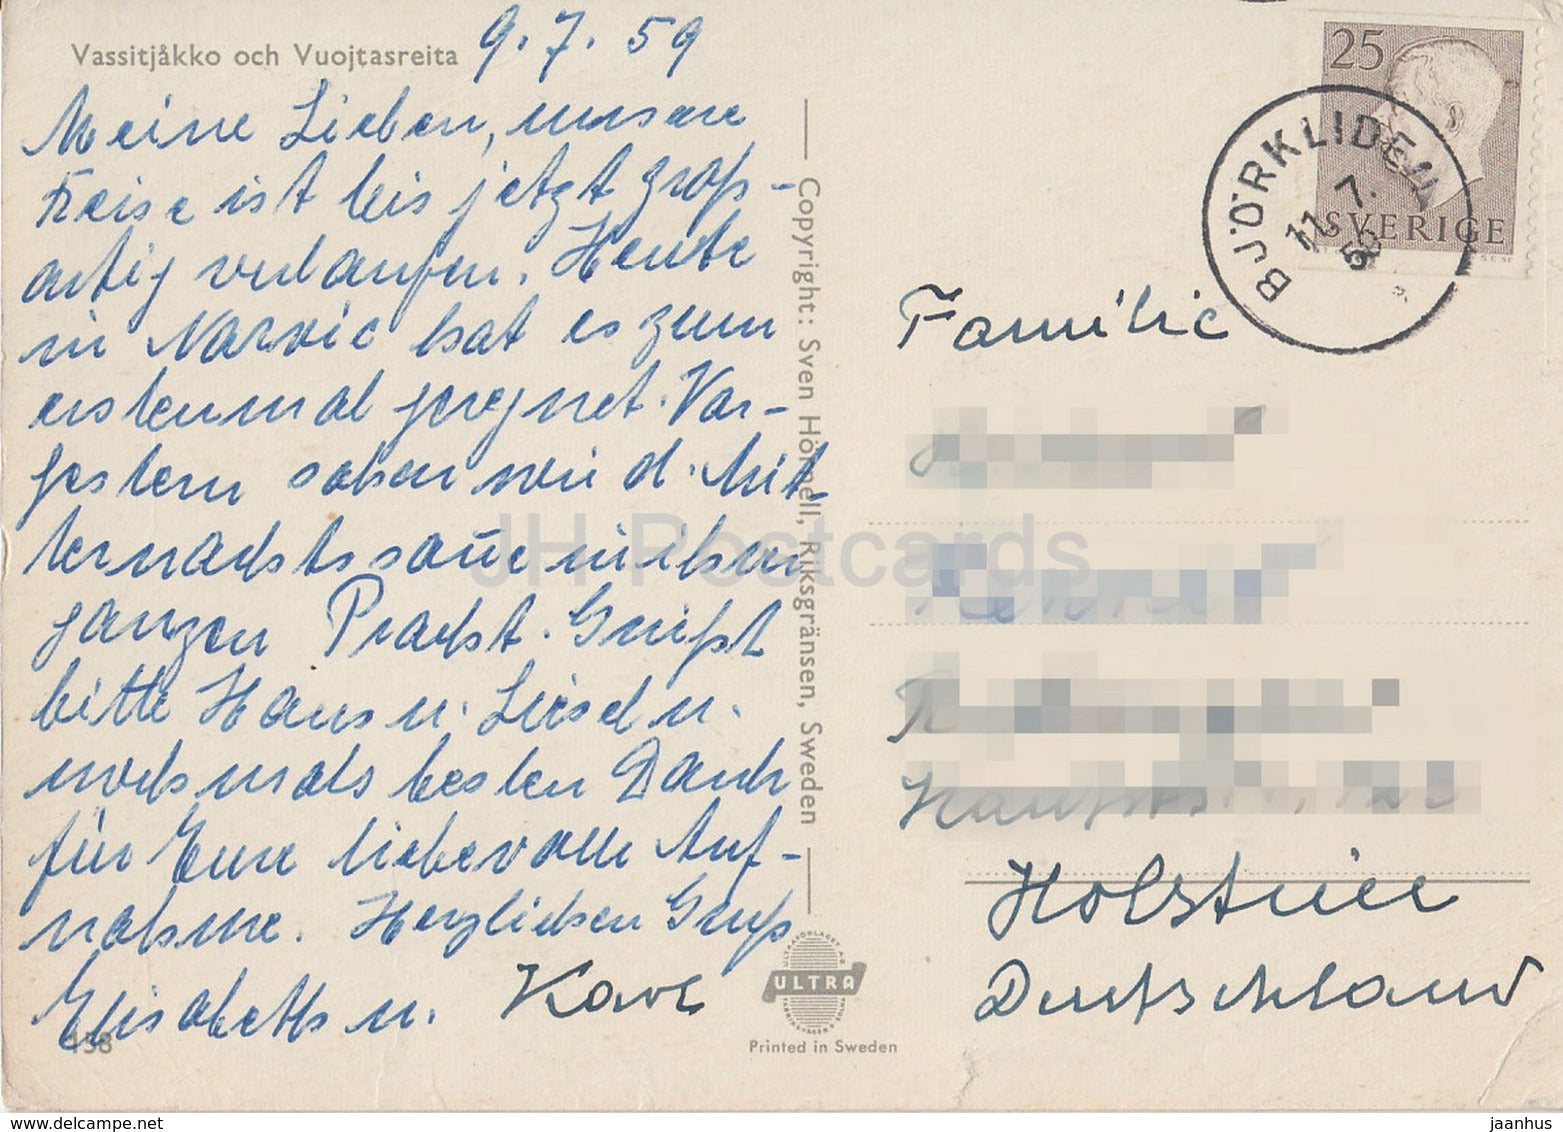 Vassitjåkko och Vuojtasreita
9.7.59
Meine Lieben, unsere
Reise ist bis jetzt groß-
artig verlaufen. Heute
in Narvic hat es zum
erstenmal geregnet. Vor-
gestern sahen wir d. Mit-
ternachtssonne in ihrer
ganzen Pracht. Grüßt
bitte Hans u. Liesel u.
nochmals besten Dank
für Eure liebevolle Auf-
nahme. Herzlichen Gruß
Elisabeth u. Karl
158
Copyright: Sven Hörnell, Riksgränsen, Sweden
ULTRA
Printed in Sweden
25
SVERIGE
BJÖRKLIDEN
11.7.
Familie
Holstein
Deutschland
JH Postcards
www.delcampe.net
jaanhus